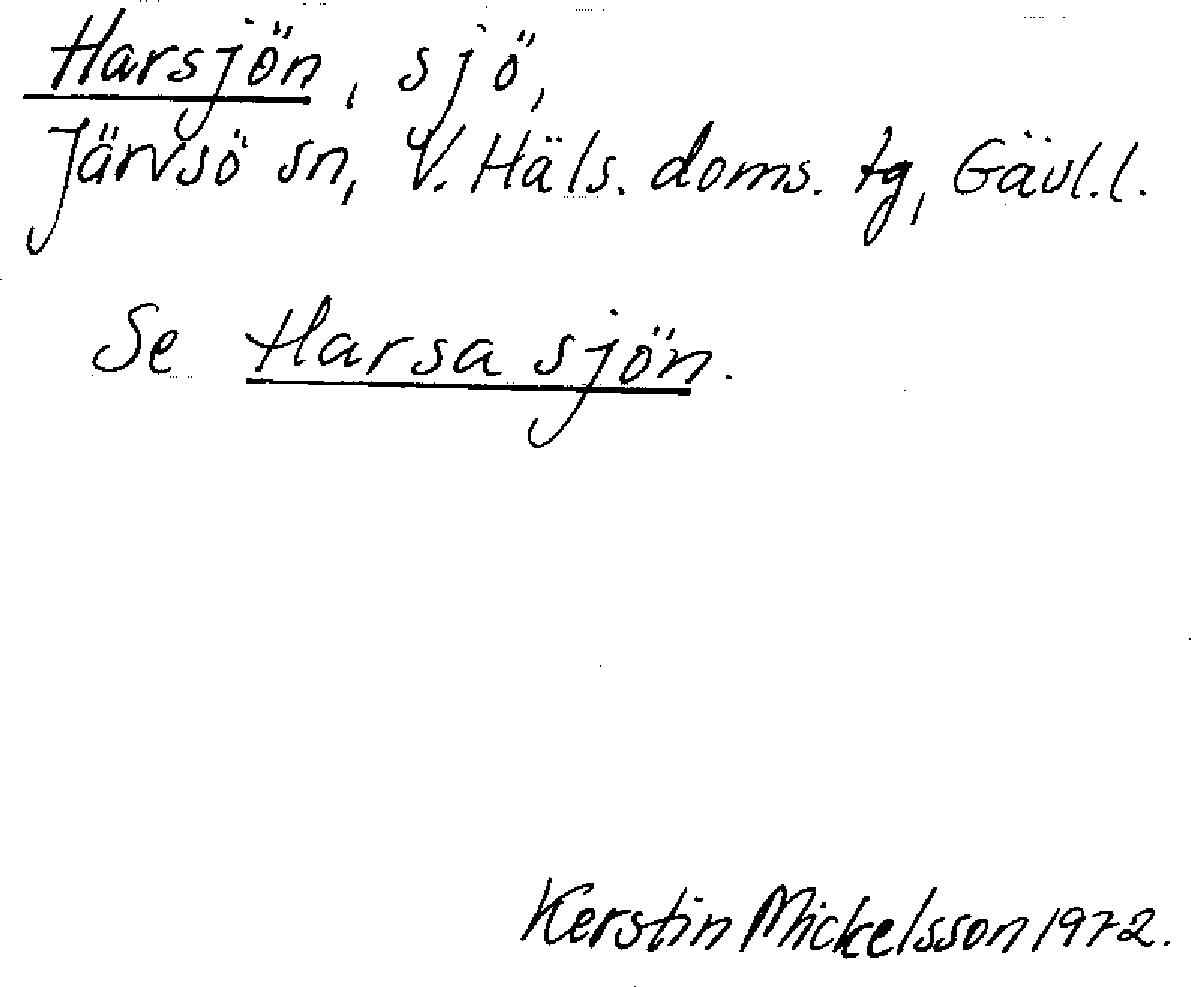 Harsjön, sjö,
Järvsö sn, V. Häls. doms. tg, Gävl.l.
Se Harsa sjön.
Kerstin Mickelsson 1972.